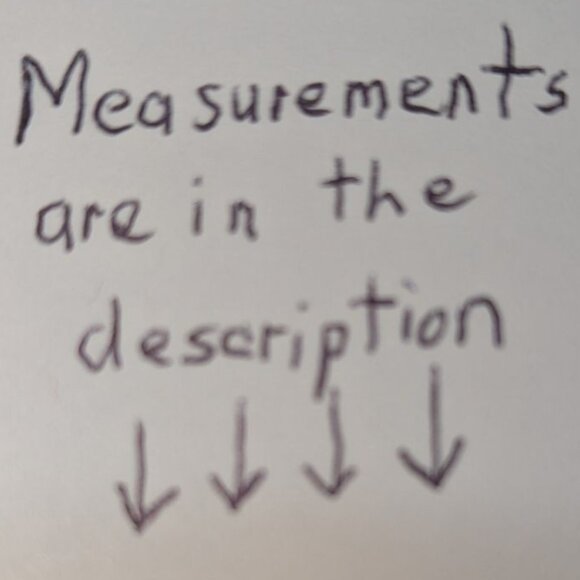 Measurements
are in the
description
↓ ↓ ↓ ↓